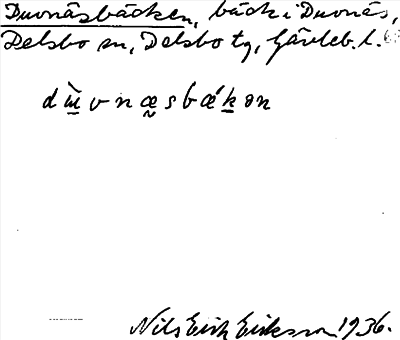 Duvnäsbäcken, bäck i Duvnäs,
Delsbo sn, Delsbo tg, Gävleb. l.
dù̱vnæ̰sbǽḵən
Nils Erik Eriksson 1936.